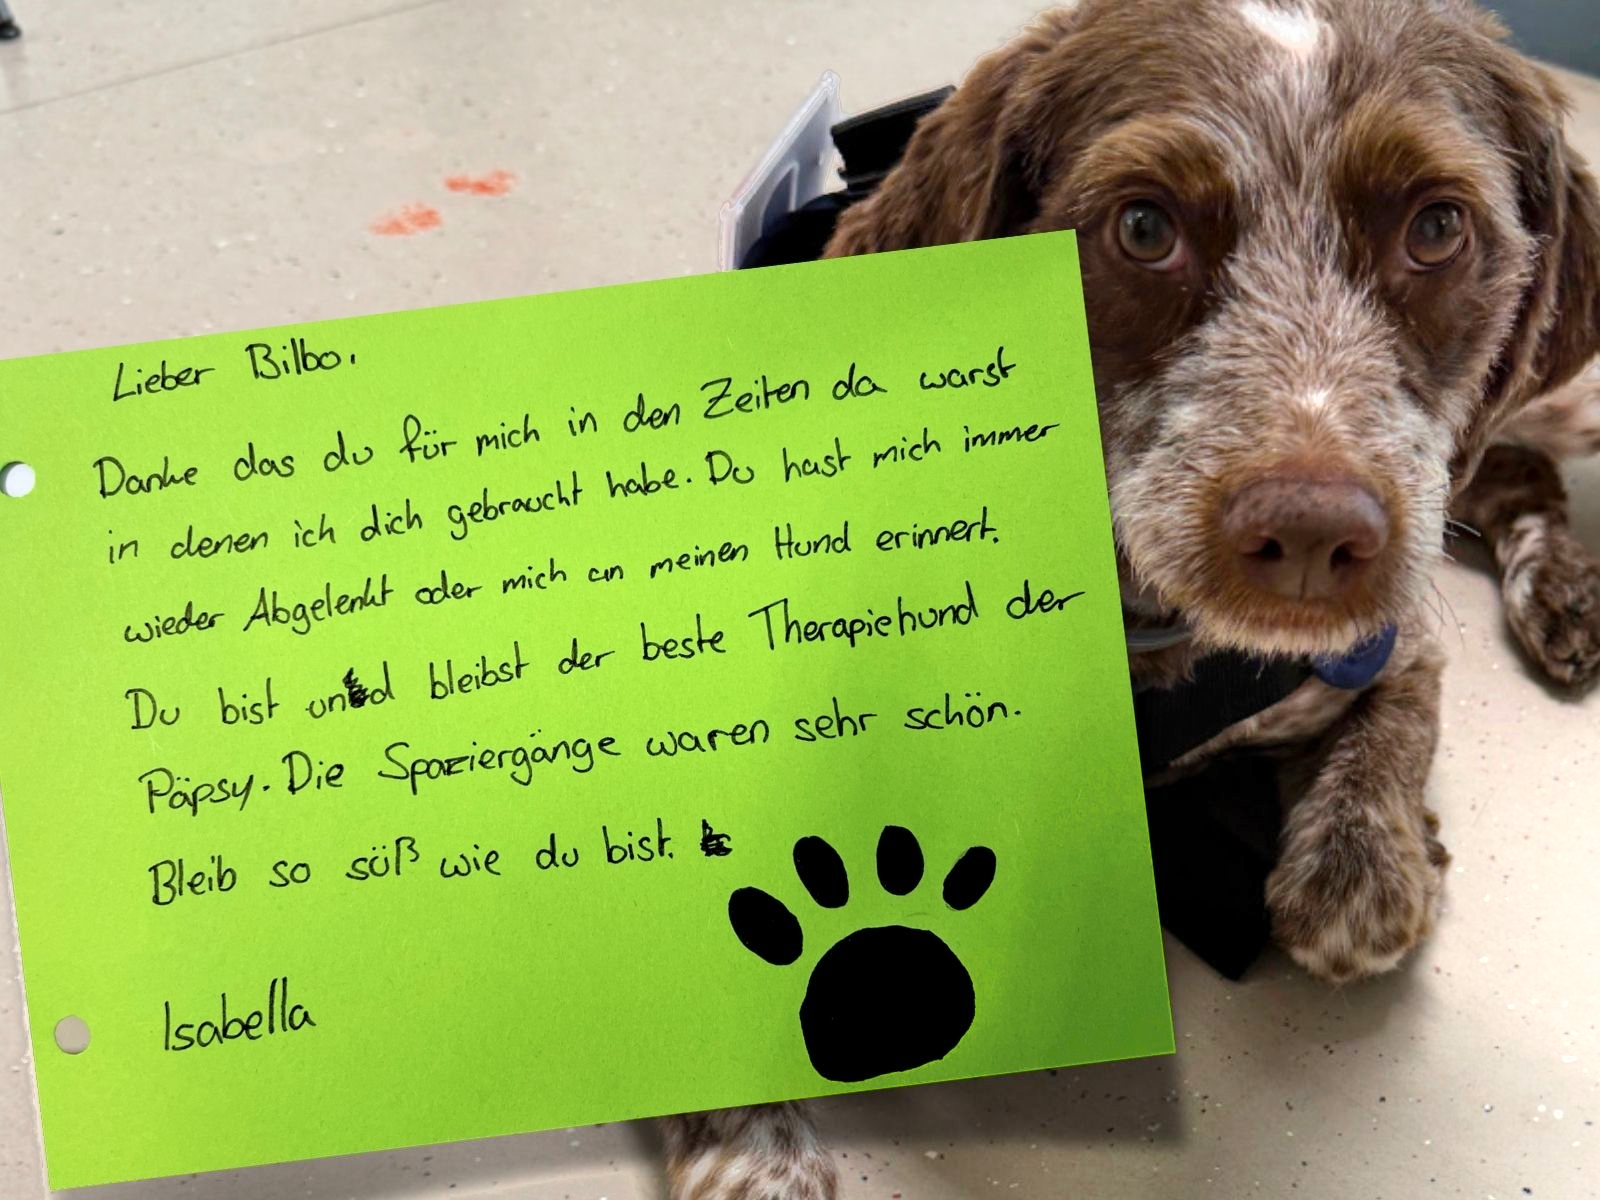 Lieber Bilbo.
Danke das du für mich in den Zeiten da warst
in denen ich dich gebraucht habe. Du hast mich immer
wieder Abgelenkt oder mich an meinen Hund erinnert.
Du bist und bleibst der beste Therapiehund der
Päpsy. Die Spaziergänge waren sehr schön.
Bleib so süß wie du bist.
Isabella